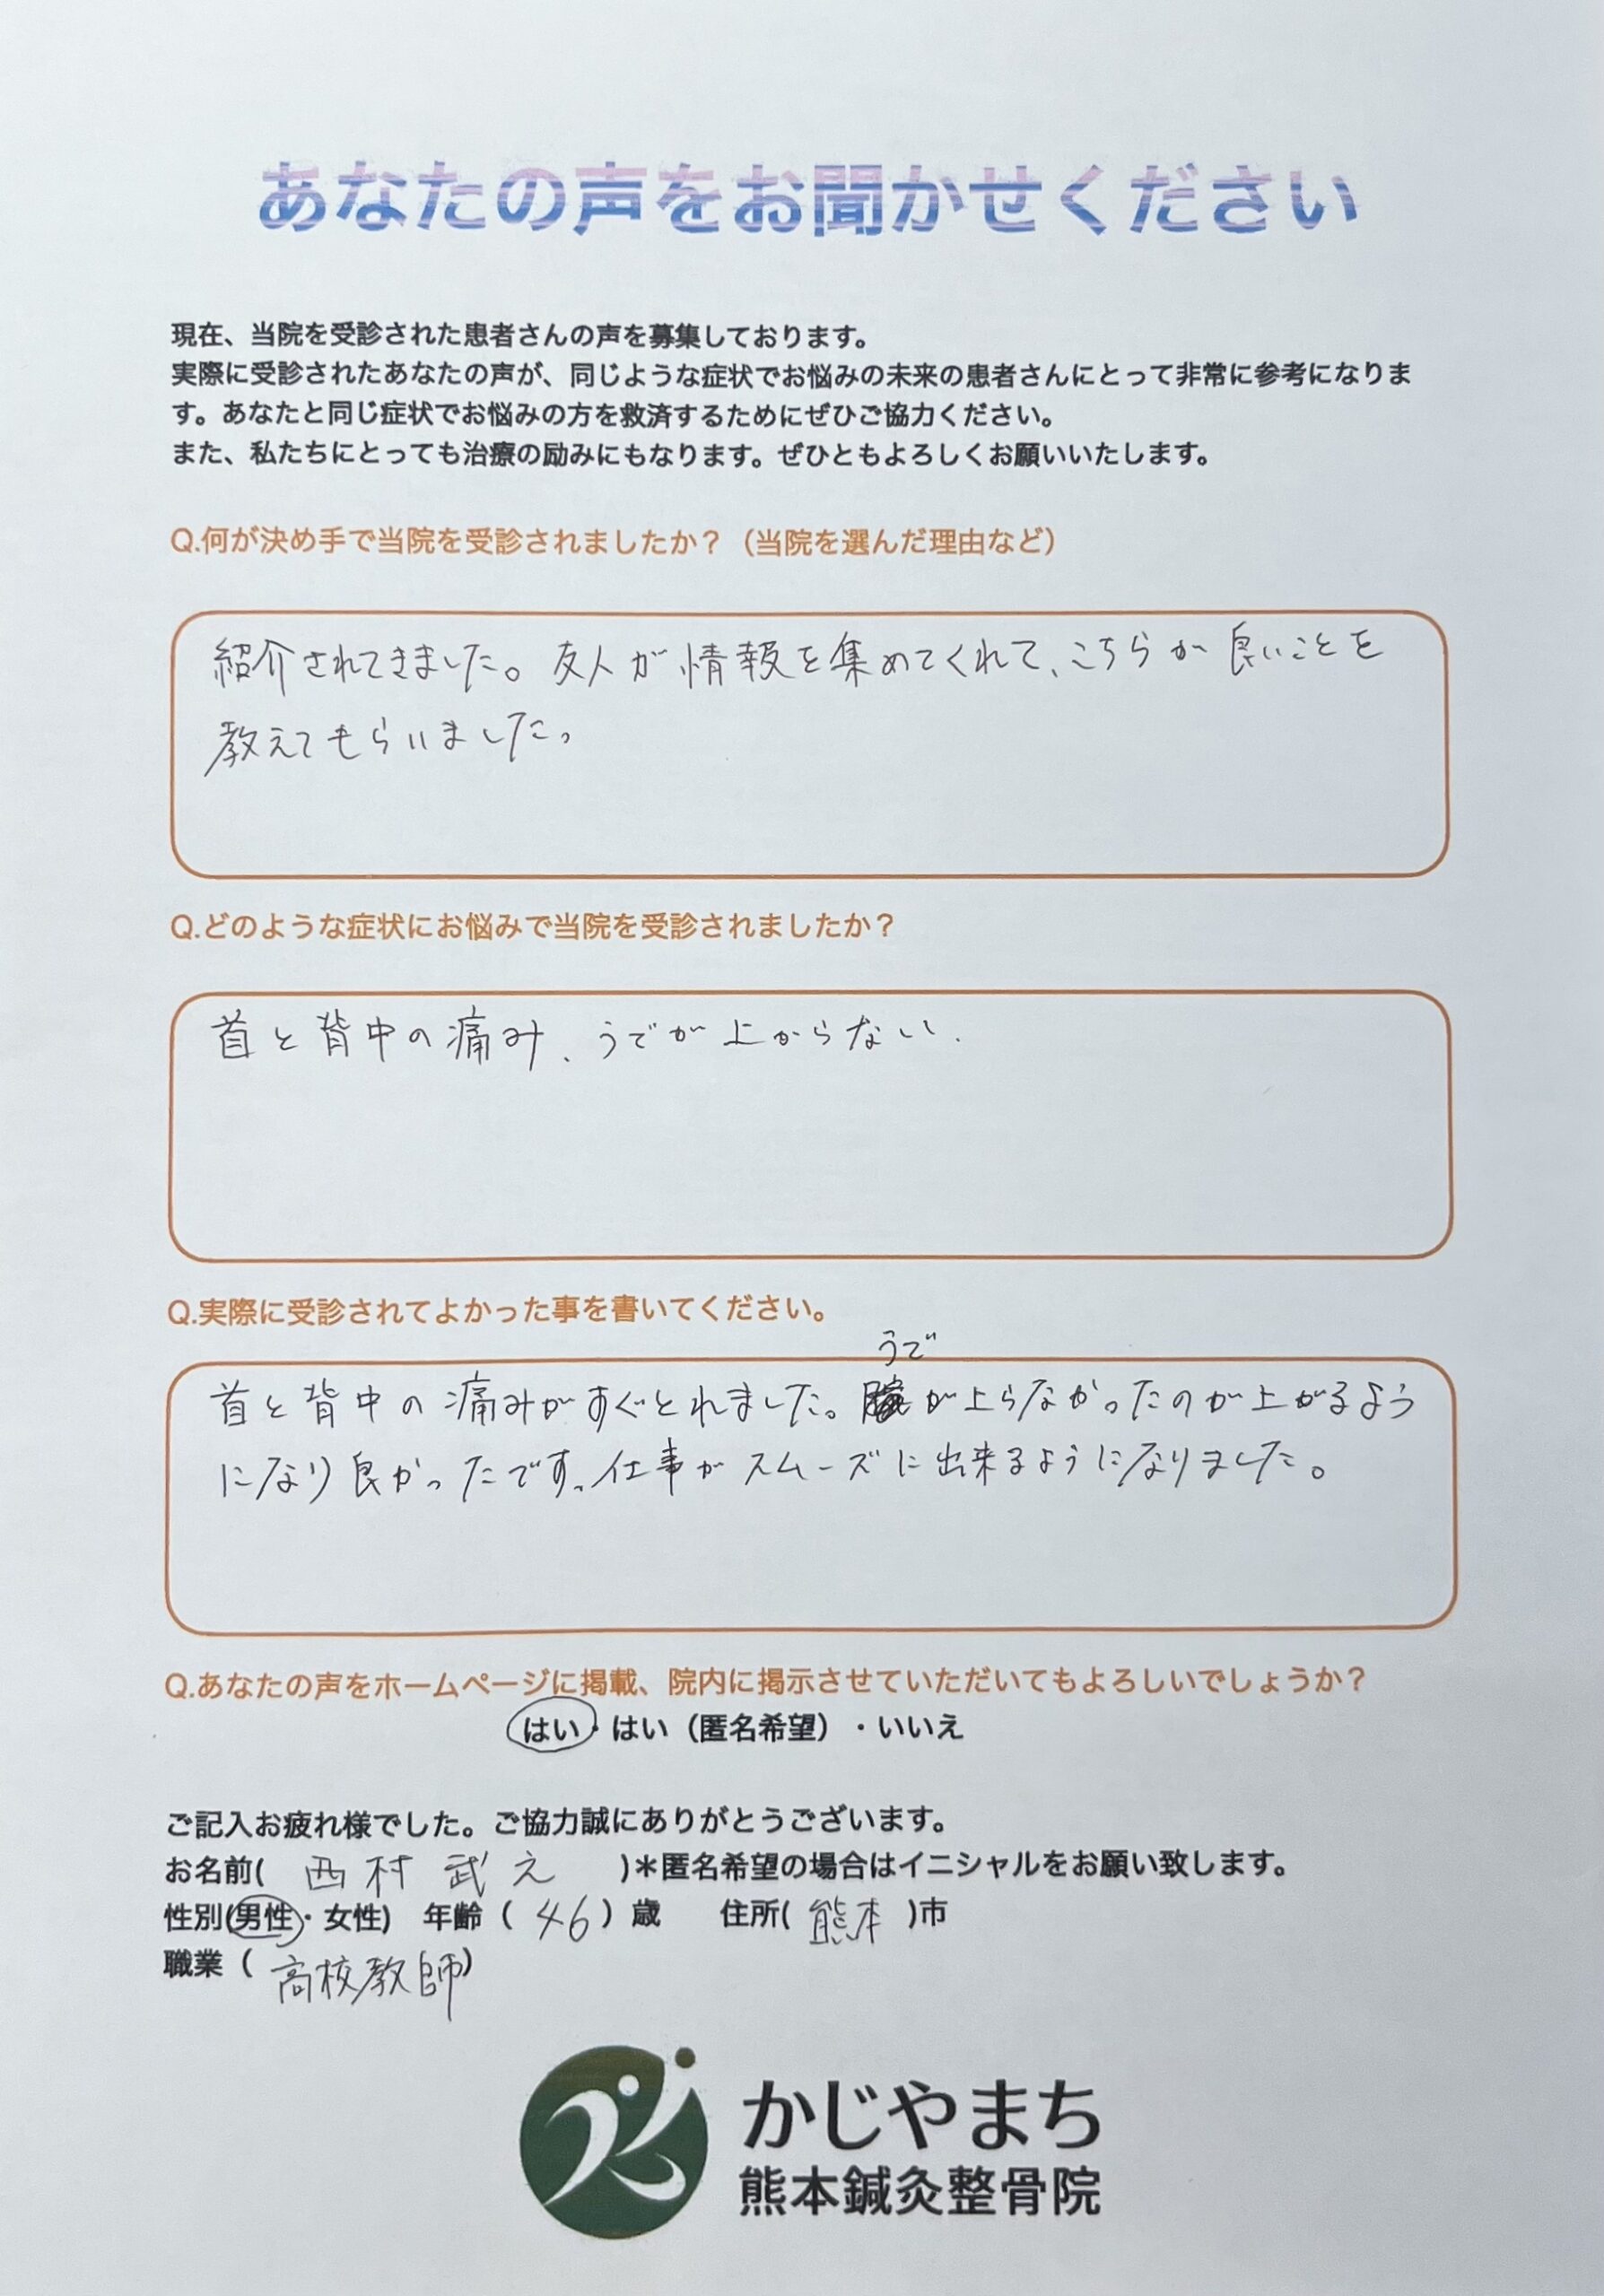 あなたの声をお聞かせください
現在、当院を受診された患者さんの声を募集しております。
実際に受診されたあなたの声が、同じような症状でお悩みの未来の患者さんにとって非常に参考になりま
す。あなたと同じ症状でお悩みの方を救済するためにぜひご協力ください。
また、私たちにとっても治療の励みにもなります。ぜひともよろしくお願いいたします。
Q.何が決め手で当院を受診されましたか？（当院を選んだ理由など）
紹介されてきました。友人が情報を集めてくれて、こちらが良いことを
教えてもらいました。
Q.どのような症状にお悩みで当院を受診されましたか？
首と背中の痛み、うでが上がらない.
Q.実際に受診されてよかった事を書いてください。
うで
首と背中の痛みがすぐとれました。が上らなかったのが上がるよう
になり良かったです。仕事がスムーズに出来るようになりました。
Q.あなたの声をホームページに掲載、院内に掲示させていただいてもよろしいでしょうか？
はい・はい（匿名希望）・いいえ
ご記入お疲れ様でした。ご協力誠にありがとうございます。
お名前( 西村 武之 )＊匿名希望の場合はイニシャルをお願い致します。
性別(男性・女性) 年齢（ 46 ）歳 住所( 熊本 )市
職業（ 高校教師)
かじやまち
熊本鍼灸整骨院